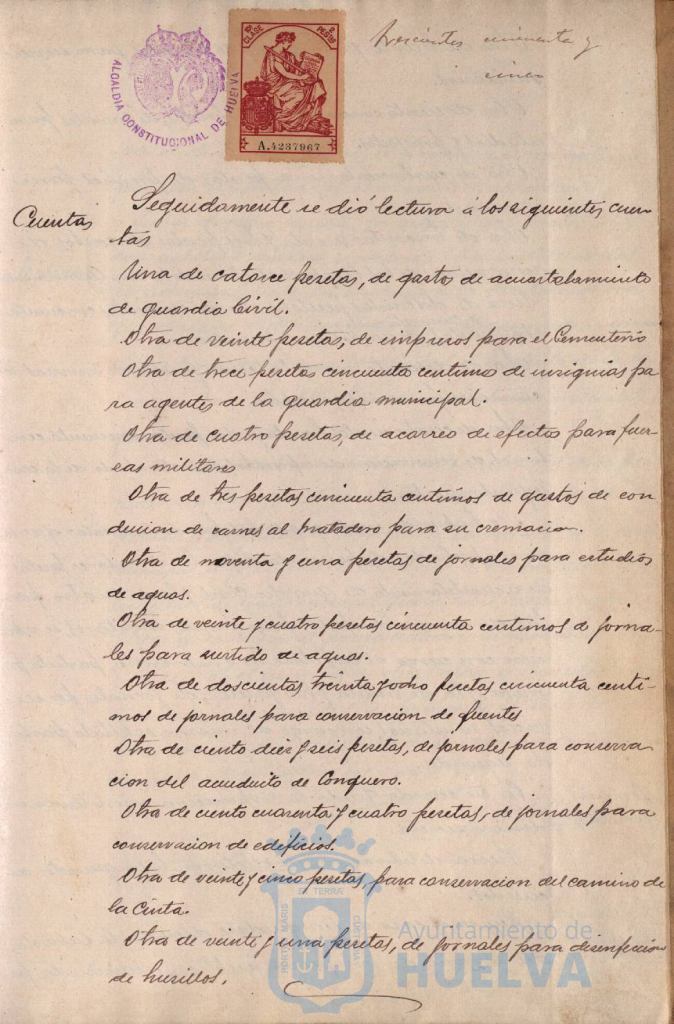 trescientos cincuenta y
cinco
ALCALDIA CONSTITUCIONAL DE HUELVA
CLASE
PESETAS
A.4237967
Cuentas
Seguidamente se dió lectura á los siguientes cuen-
tas
Una de catorce pesetas, de gastos de acuartelamiento
de guardia Civil.
Otra de veinte pesetas, de impresos para el Cementerio
Otra de trece pesetas cincuenta centimo de insignias pa
ra agentes de la guardia municipal.
Otra de cuatro pesetas, de acarreo de efectos para fuer-
zas militares
Otra de tres pesetas cincuenta centimos de gastos de con
duccion de carnes al matadero para su cremacion.
Otra de noventa y una pesetas de jornales para estudios
de aguas.
Otra de veinte y cuatro pesetas cincuenta centimos de jorna-
les para surtido de aguas.
Otra de doscientas treinta y ocho pesetas cincuenta centi-
mos de jornales para conservacion de fuentes
Otra de ciento diez y seis pesetas, de jornales para conserva
cion del acueducto de Conquero.
Otra de ciento cuarenta y cuatro pesetas, de jornales para
conservacion de edificios.
Otra de veinte y cinco pesetas, para conservacion del camino de
la Cinta.
Otra de veinte y una pesetas, de jornales para desinfeccion
de husillos.
Ayuntamiento de
HUELVA